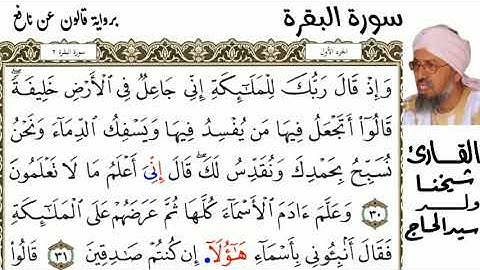 سورة البقرة
برواية قالون عن نافع
الجزء الأول
سورة البقرة ٢
وَإِذْ قَالَ رَبُّكَ لِلْمَلَٰٓئِكَةِ إِنِّى جَاعِلٌ فِى ٱلْأَرْضِ خَلِيفَةًۖ
قَالُوٓا۟ أَتَجْعَلُ فِيهَا مَن يُفْسِدُ فِيهَا وَيَسْفِكُ ٱلدِّمَآءَ وَنَحْنُ
نُسَبِّحُ بِحَمْدِكَ وَنُقَدِّسُ لَكَۖ قَالَ إِنِّىَ أَعْلَمُ مَا لَا تَعْلَمُونَ
٣٠ وَعَلَّمَ ءَادَمَ ٱلْأَسْمَآءَ كُلَّهَا ثُمَّ عَرَضَهُمْ عَلَى ٱلْمَلَٰٓئِكَةِ
فَقَالَ أَنۢبِـُٔونِى بِأَسْمَآءِ هَٰٓؤُلَآ. إِن كُنتُمْ صَٰدِقِينَ ٣١ قَالُوا۟
القارئ
شيخنا
ولد
سيد الحاج